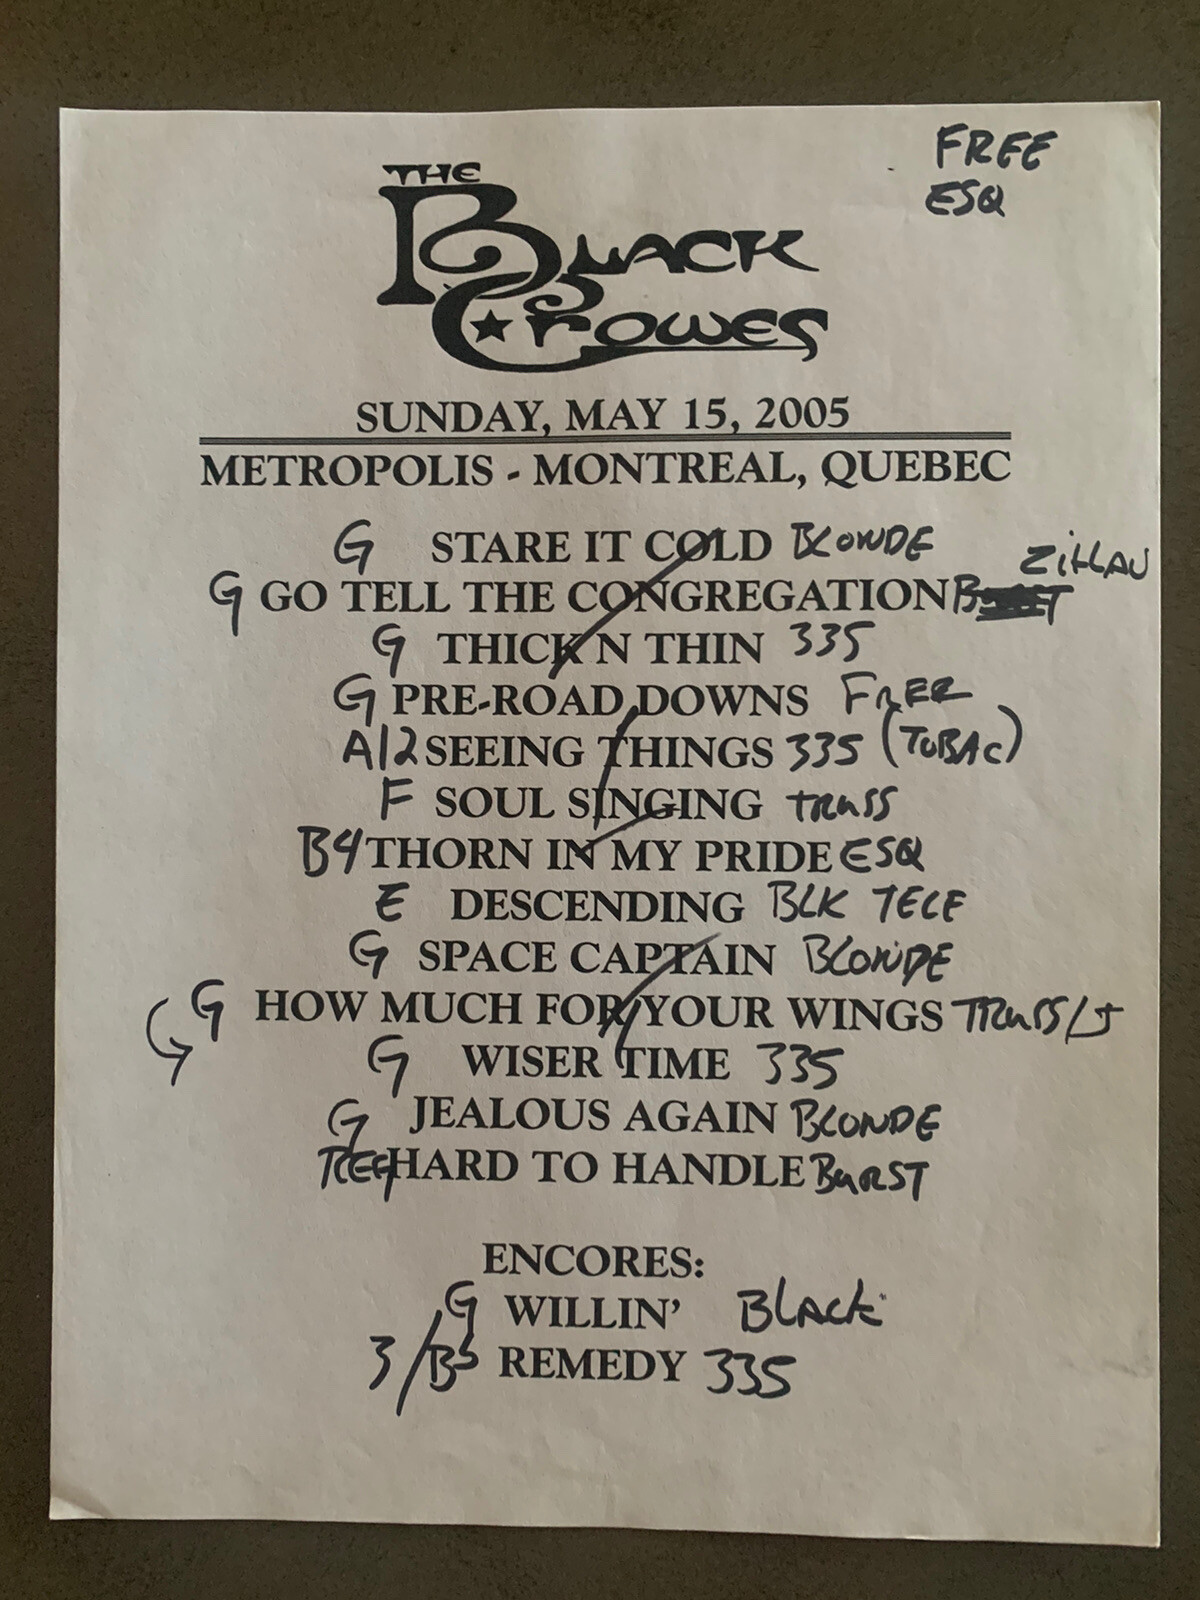 FREE
ESQ
THE
BLACK
CROWES
SUNDAY, MAY 15, 2005
METROPOLIS - MONTREAL, QUEBEC
G STARE IT COLD BLONDE
ZILLAU
G GO TELL THE CONGREGATION
G THICK N THIN 335
G PRE-ROAD DOWNS FREE
A12 SEEING THINGS 335 (TOBAC)
F SOUL SINGING TRUSS
B4 THORN IN MY PRIDE ESQ
E DESCENDING BLK TELE
G SPACE CAPTAIN BLONDE
G HOW MUCH FOR YOUR WINGS TRUSS/
G WISER TIME 335
G JEALOUS AGAIN BLONDE
REG HARD TO HANDLE BURST
ENCORES:
G WILLIN' BLACK
3/B3 REMEDY 335